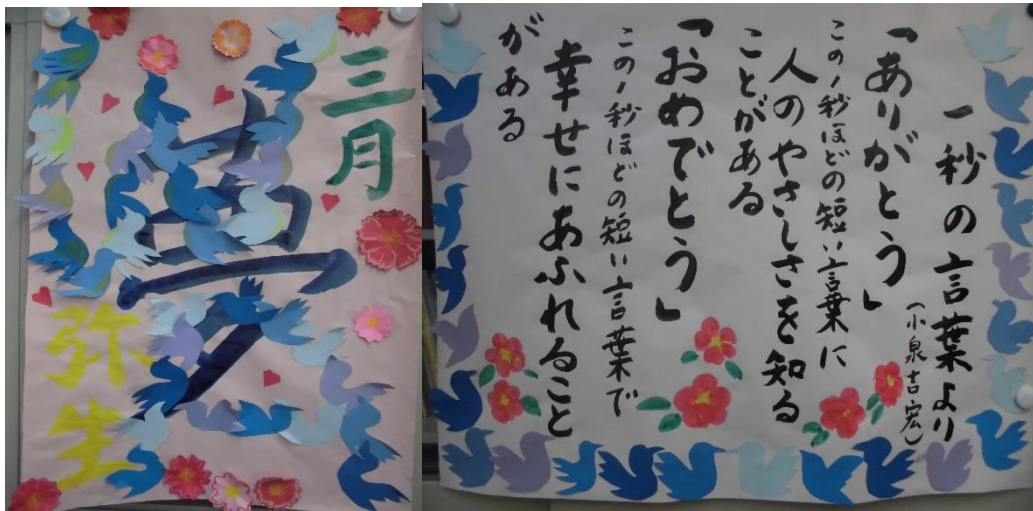 三月
夢
弥生
一秒の言葉より
(小泉吉宏)
「ありがとう」
この1秒ほどの短い言葉に
人のやさしさを知る
ことがある
「おめでとう」
この1秒ほどの短い言葉で
幸せにあふれること
がある